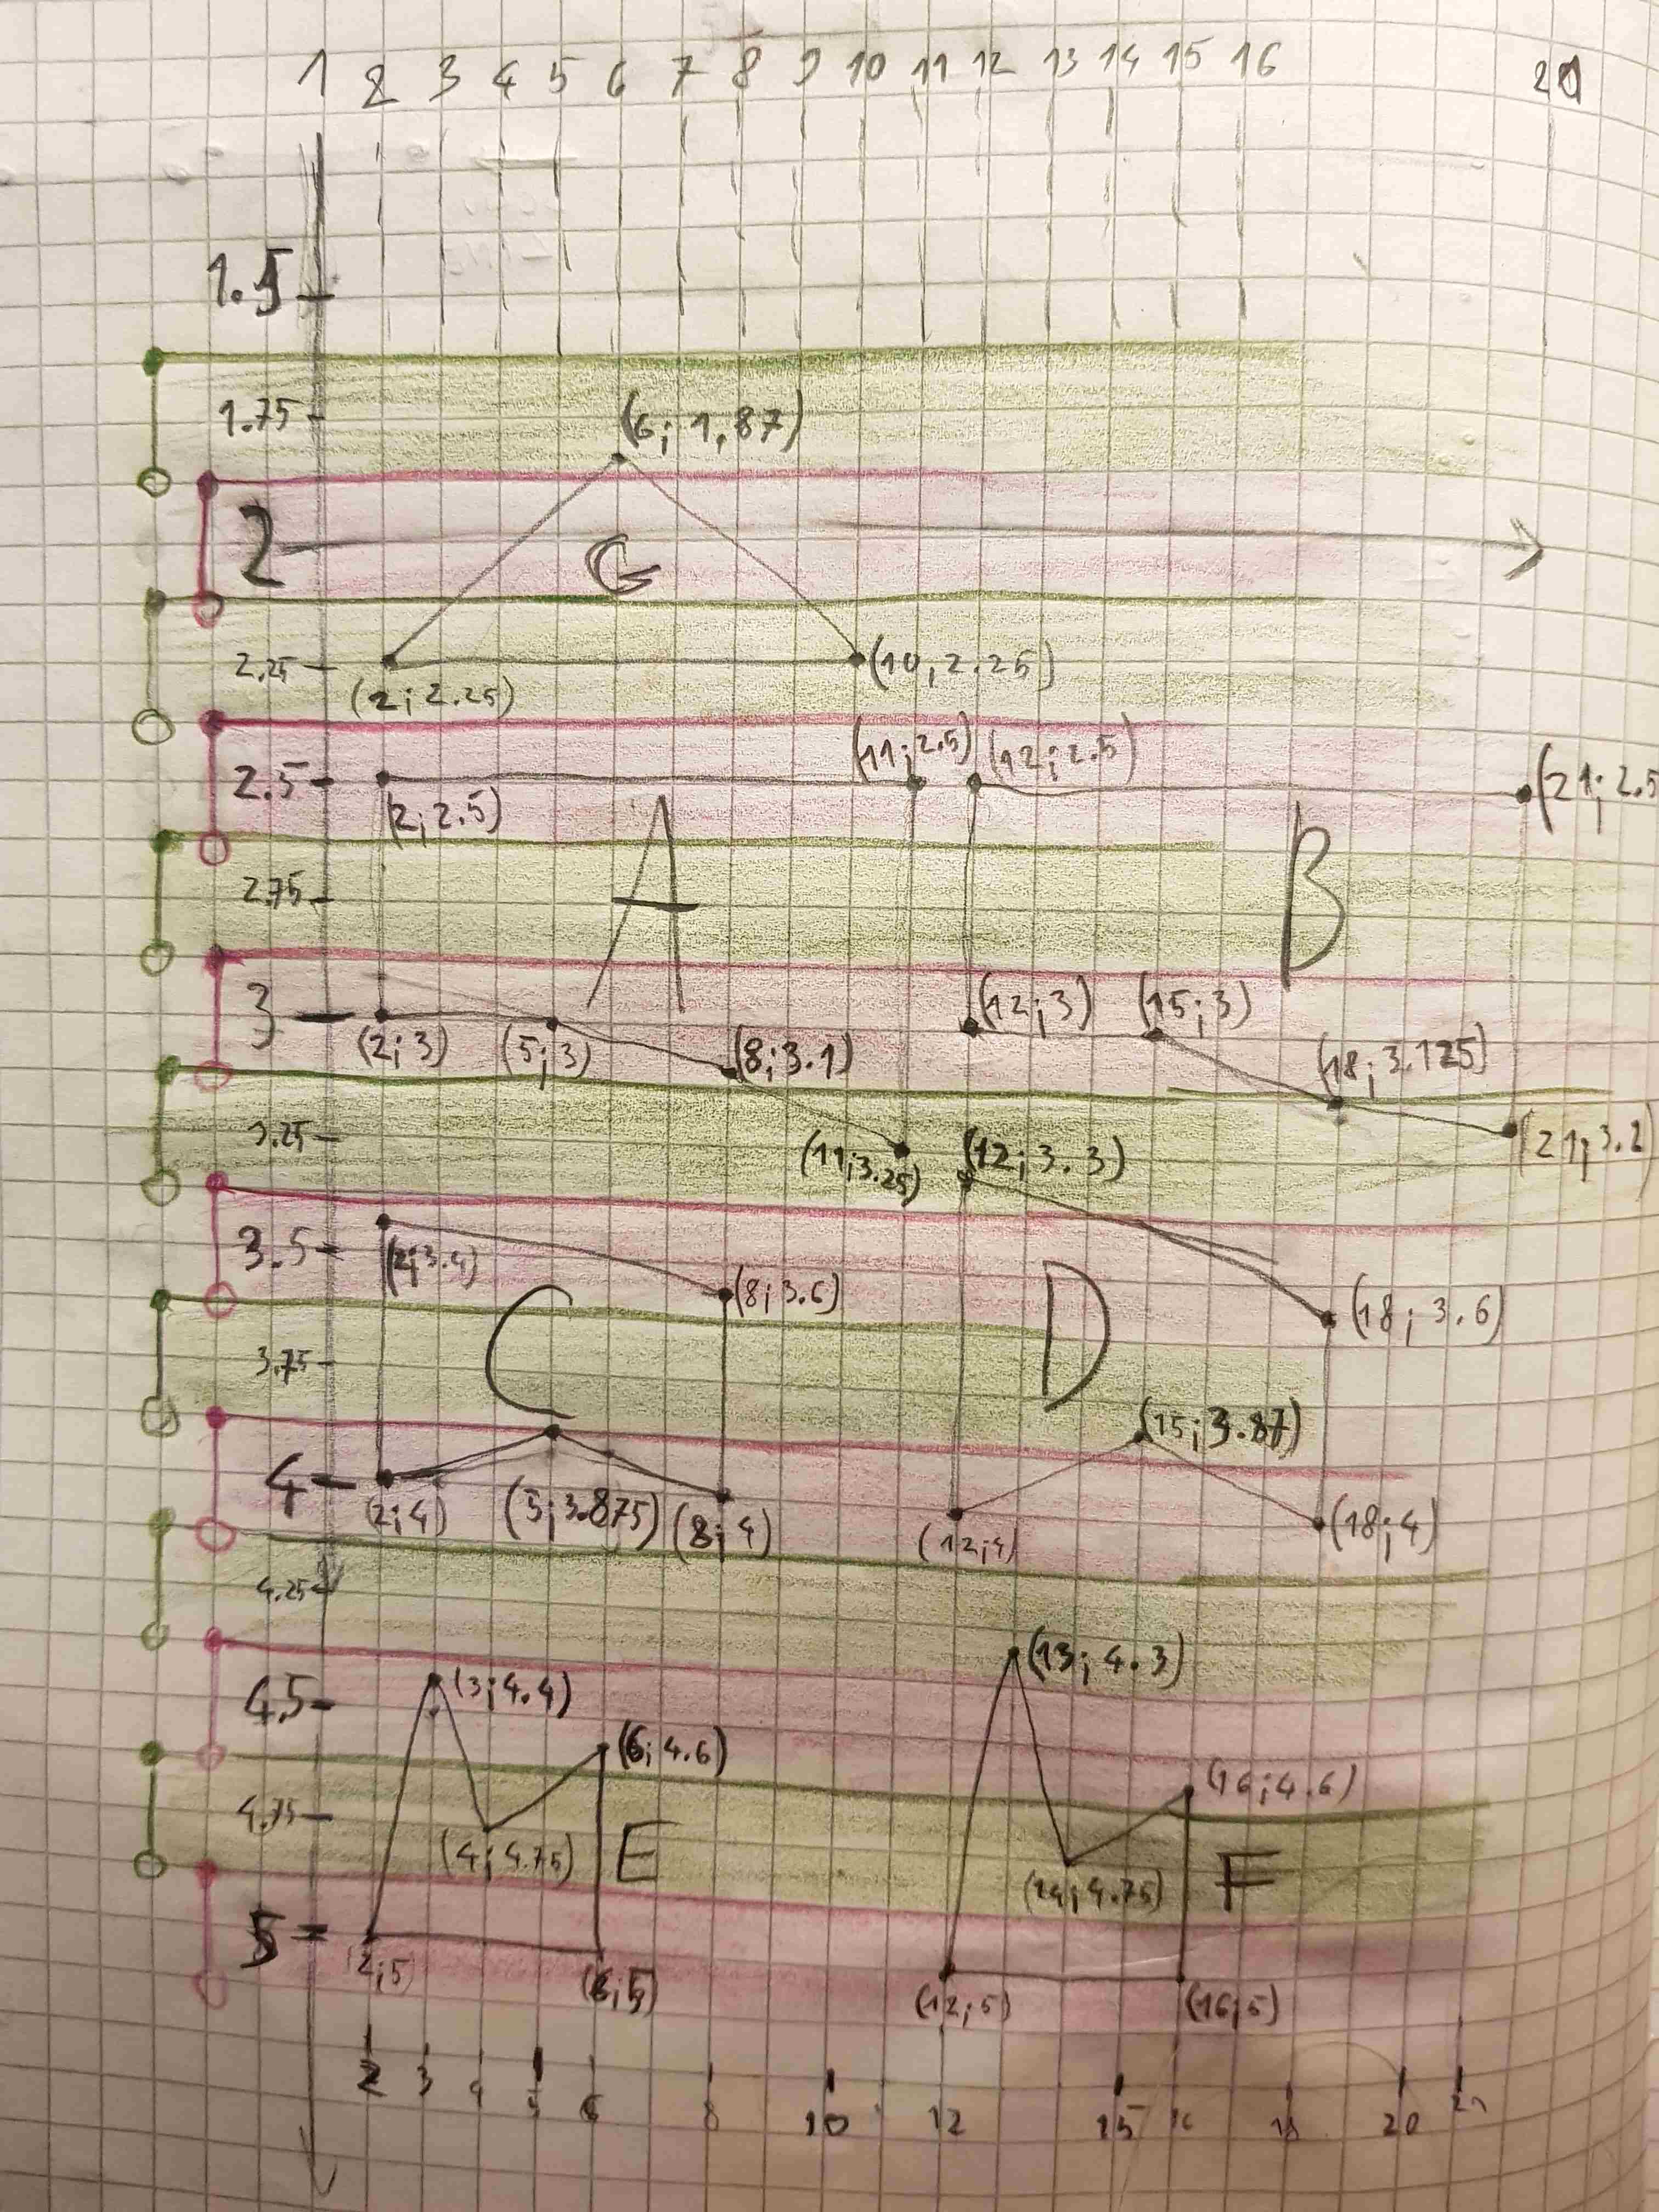 1 2 3 4 5 6 7 8 9 10 11 12 13 14 15 16
1.5
1.75
(6; 1,87)
2
G
2.25
(2; 2.25)
(10, 2.25)
(11; 2.5) (12; 2.5)
2.5
(2; 2.5)
(21; 2.5
A
B
2.75
3
(2; 3) (5; 3)
(8; 3.1)
(12; 3) (15; 3)
(18; 3.125)
3.25
(11; 3.25)
(12; 3.3)
(21; 3.2)
3.5
(2; 3.4)
(8; 3.6)
(18; 3.6)
C
D
3.75
(15; 3.87)
4
(2; 4) (5; 3.875) (8; 4)
(12; 4)
(18; 4)
4.25
4.5
(3; 4.4)
(13; 4.3)
(6; 4.6)
(16; 4.6)
4.75
(4; 4.75)
E
(14; 4.75)
F
5
(2; 5)
(6; 5)
(12; 5)
(16; 5)
2 3 4 5 6 8 10 12 15 16 18 20 21